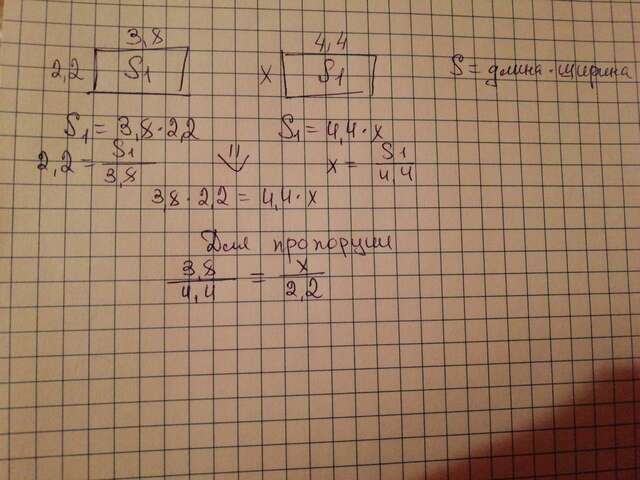 3,8 4,4
2,2 S1 x S1 S = длина · ширина
S1 = 3,8 · 2,2 S1 = 4,4 · x
2,2 = S1/3,8 ⇓ x = S1/4,4
3,8 · 2,2 = 4,4 · x
Для пропорции
3,8/4,4 = x/2,2